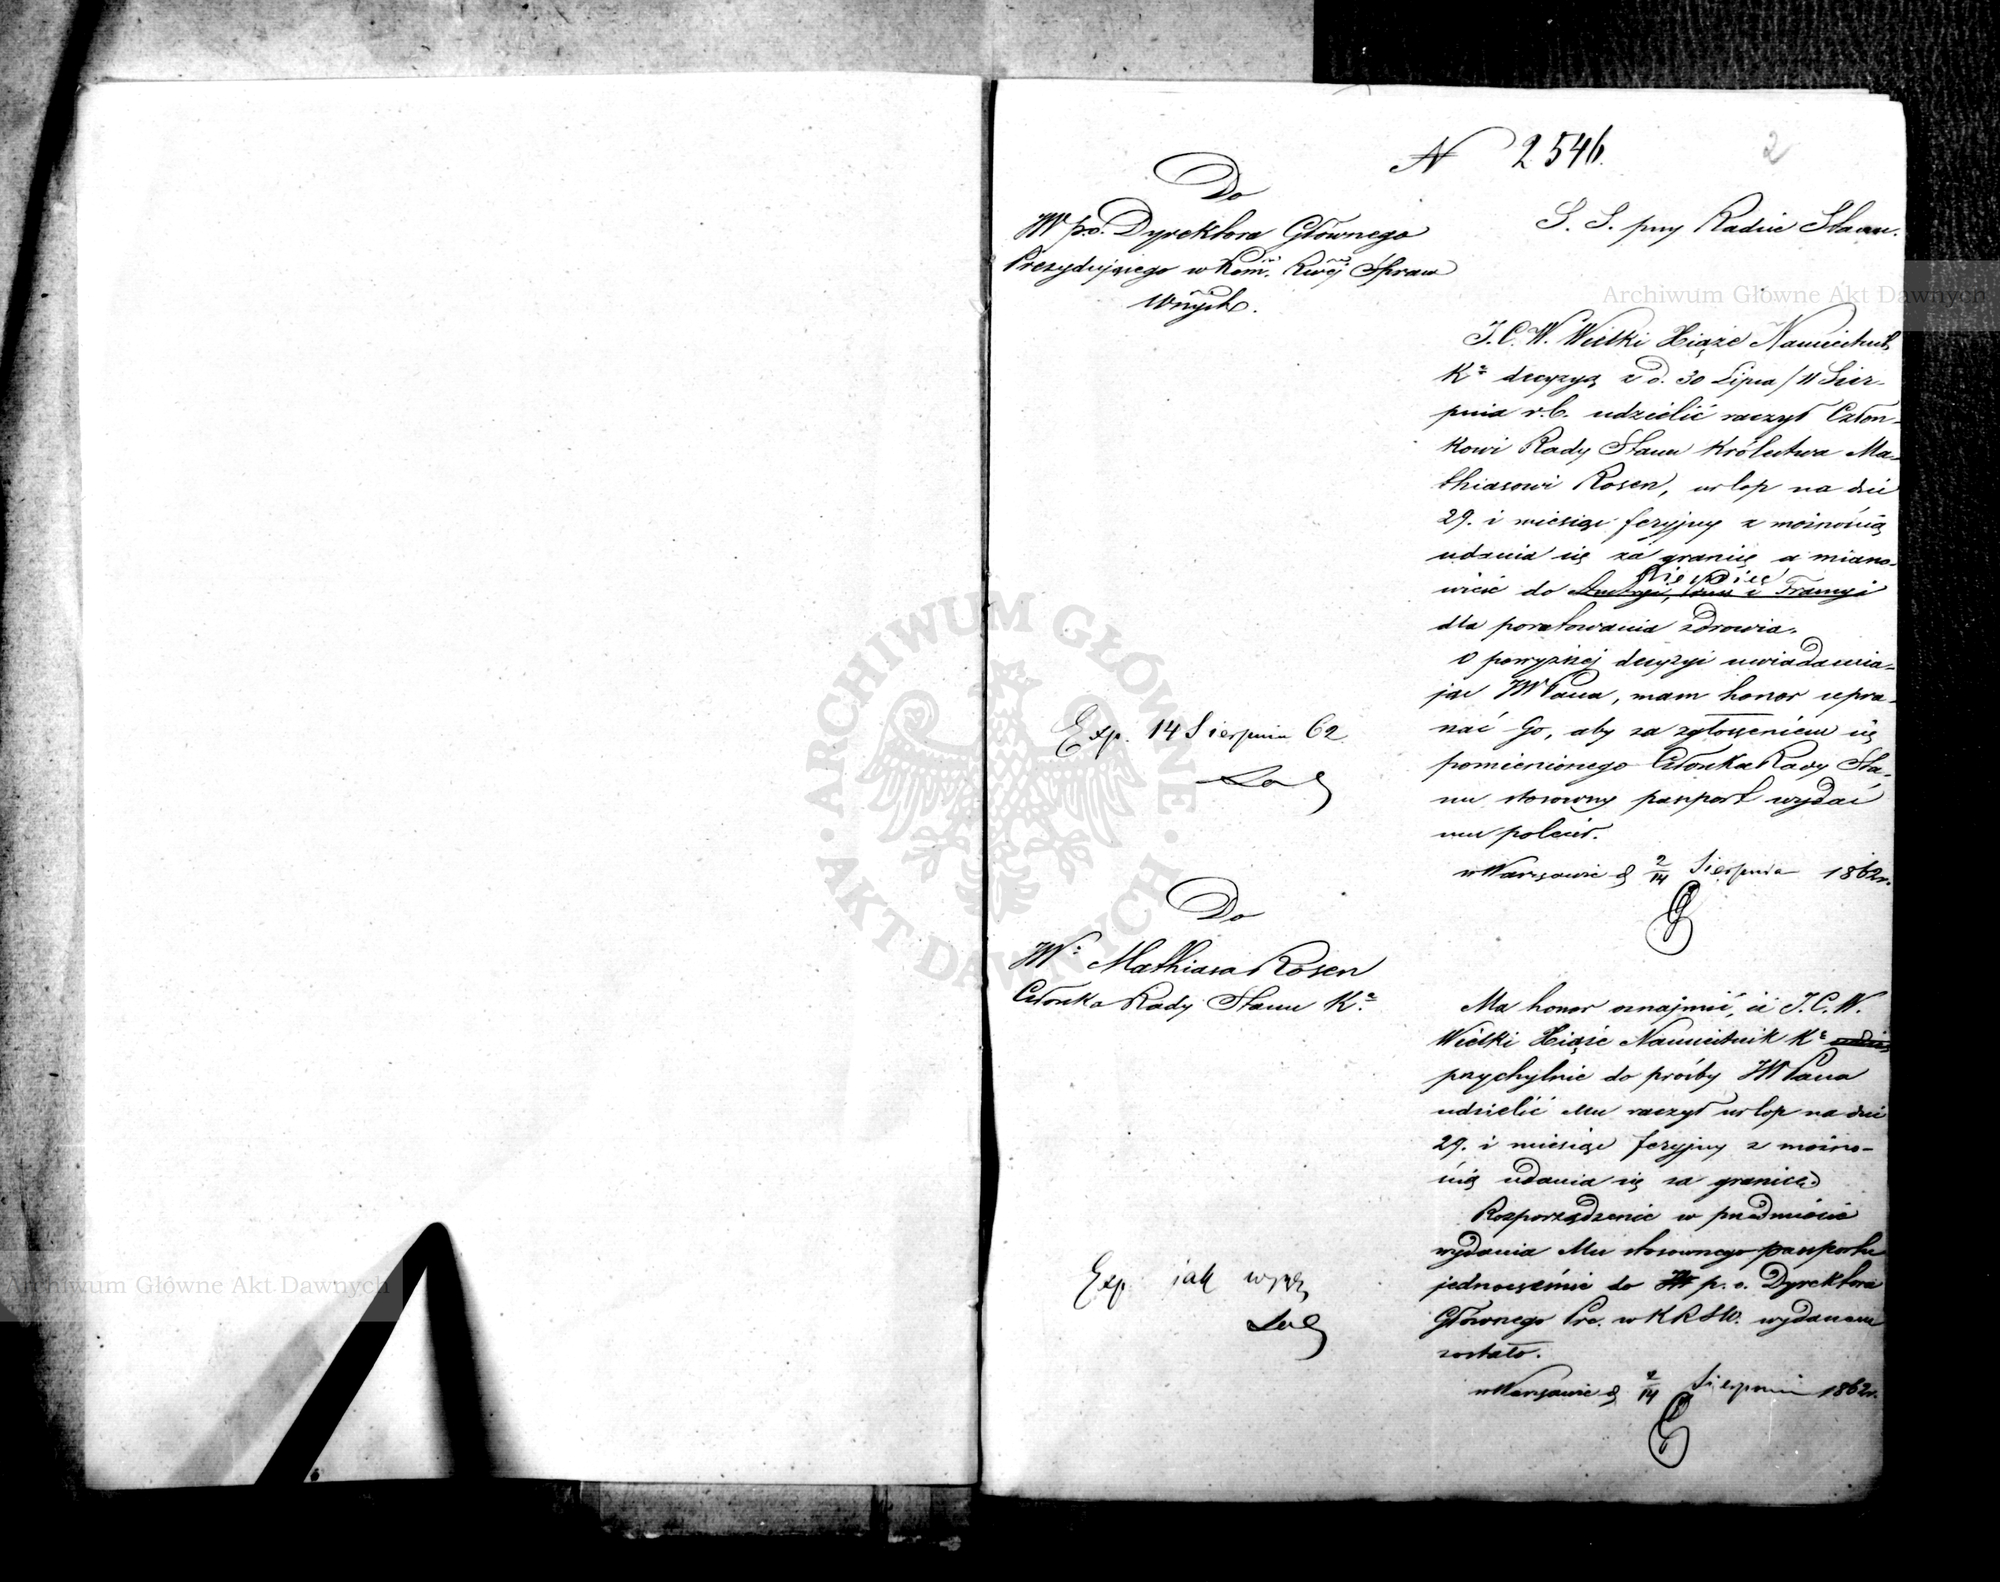 N 2546.
2
Do
JW p.o. Dyrektora Głównego
Prezydującego w Kom. Rwéj Spraw
Wnych.
S. S. przy Radzie Stanu.
J.C.W. Wielki Xiąże Namiestnik
Kª decyzyą z d. 30 Lipca / 11 Sier-
pnia r.b. udzielić raczył Człon-
kowi Rady Stanu Królestwa Ma-
thiasowi Rosen, urlop na dni
29. i miesiąc feryjny z możnością
udania się za granicę a miano-
wicie do i Francyi
dla poratowania zdrowia.
O powyższej decyzyi uwiadamia-
jąc JWPana, mam honor upra-
szać Go, aby za zgłoszeniem się
pomienionego Członka Rady Sta-
nu stosowny pasport wydać
mu polecił.
w Warszawie d 2/14 Sierpnia 1862 r.
Exp. 14 Sierpnia 62
Do
JWº Mathiasa Rosen
Członka Rady Stanu Kª
Ma honor oznajmić, iż J.C.W.
Wielki Xiąże Namiestnik Kª
przychylnie do prośby JWPana
udzielić Mu raczył urlop na dni
29. i miesiąc feryjny z możno-
ścią udania się za granicę.
Rozporządzenie w przedmiocie
wydania Mu stosownego pasportu
jednocześnie do JW p. o. Dyrektora
Głównego Prez. w KRSW. wydanem
zostało.
w Warszawie d 2/14 Sierpnia 1862 r.
Exp. jak wyżej
Archiwum Główne Akt Dawnych
ARCHIWUM GŁÓWNE · AKT DAWNYCH ·
Archiwum Główne Akt Dawnych